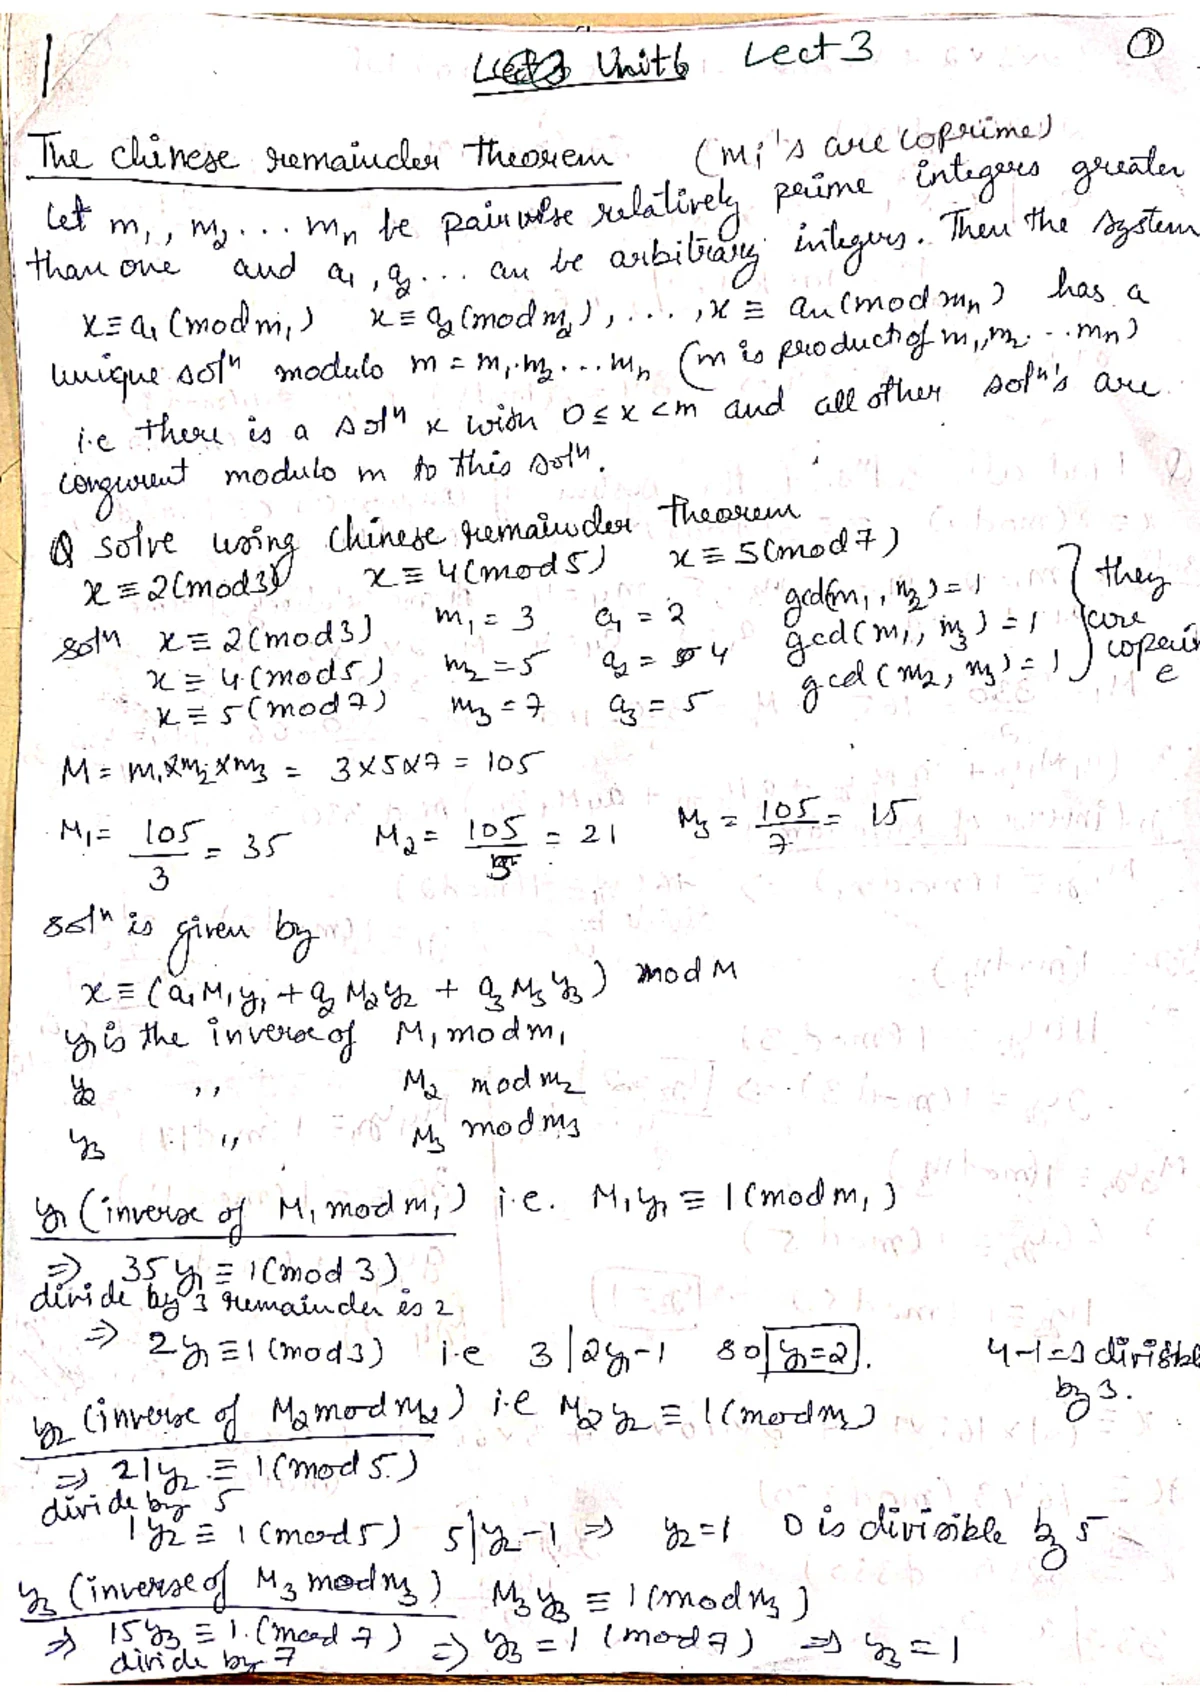 Unit 6 Lect 3
①
The chinese remainder theorem (mi's are coprime)
Let m₁, m₂ ... mₙ be pairwise relatively prime integers greater
than one and a₁, a₂ ... an be arbitrary integers. Then the system
x ≡ a₁ (mod m₁) x ≡ a₂ (mod m₂), ..., x ≡ an (mod mn) has a
unique solⁿ modulo m = m₁.m₂...mₙ (m is product of m₁, m₂ ... mn)
i.e there is a solⁿ x with 0 ≤ x < m and all other solⁿ's are
congruent modulo m to this solⁿ.
Q solve using Chinese remainder theorem
x ≡ 2(mod 3) x ≡ 4(mod 5) x ≡ 5(mod 7)
solⁿ x ≡ 2(mod 3) m₁ = 3 a₁ = 2 gcd(m₁, m₂) = 1
x ≡ 4(mod 5) m₂ = 5 a₂ = 4 gcd(m₁, m₃) = 1
x ≡ 5(mod 7) m₃ = 7 a₃ = 5 gcd(m₂, m₃) = 1
} they are coprime
M = m₁ x m₂ x m₃ = 3x5x7 = 105
M₁ = 105/3 = 35 M₂ = 105/5 = 21 M₃ = 105/7 = 15
solⁿ is given by
x ≡ (a₁M₁y₁ + a₂M₂y₂ + a₃M₃y₃) mod M
y₁ is the inverse of M₁ mod m₁
y₂ ,, M₂ mod m₂
y₃ ,, M₃ mod m₃
y₁ (inverse of M₁ mod m₁) i.e. M₁y₁ ≡ 1(mod m₁)
⇒ 35y₁ ≡ 1(mod 3)
divide by 3 remainder is 2
⇒ 2y₁ ≡ 1(mod 3) i.e 3|2y₁-1 so y₁=2. 4-1=3 divisible
by 3.
y₂ (inverse of M₂ mod m₂) i.e M₂y₂ ≡ 1(mod m₂)
⇒ 21y₂ ≡ 1(mod 5)
divide by 5
1y₂ ≡ 1(mod 5) 5|y₂-1 ⇒ y₂=1 0 is divisible by 5
y₃ (inverse of M₃ mod m₃) M₃y₃ ≡ 1(mod m₃)
⇒ 15y₃ ≡ 1.(mod 7) ⇒ y₃ = 1 (mod 7) ⇒ y₃ = 1
divide by 7